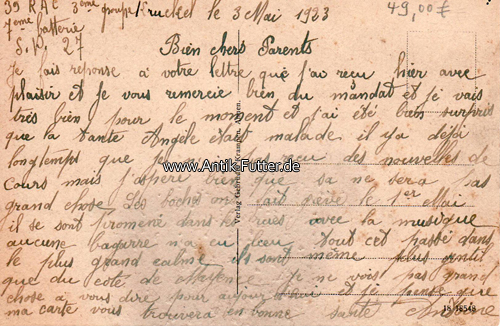 39 RAC 3ème groupe Kruckel le 3 Mai 1923
7ème batterie
S.P. 27
49,00€
Bien chers Parents
Je fais reponse a votre lettre que j'ai reçu hier avec
plaisir et je vous remercie bien du mandat et je vais
très bien pour le moment et j'ai été bien surpris
que la tante Angèle était malade il y a déjà
longtemps que je eu des nouvelles de
www.Antik-Futter.de
cours mais j'aspère bien que sa ne sera pas
grand chose Les boches on fait grève le 1er Mai
il se sont promené dans les rues avec la musique
aucune bagarre n'a eu lieu tout cet passé dans
le plus grand calme ils sont même plus
que du coté de Mayenne Je ne vois pas grand
chose a vous dire pour aujourd'hui et je pense que
ma carte vous trouvera en bonne santé
Verlag
18 16548